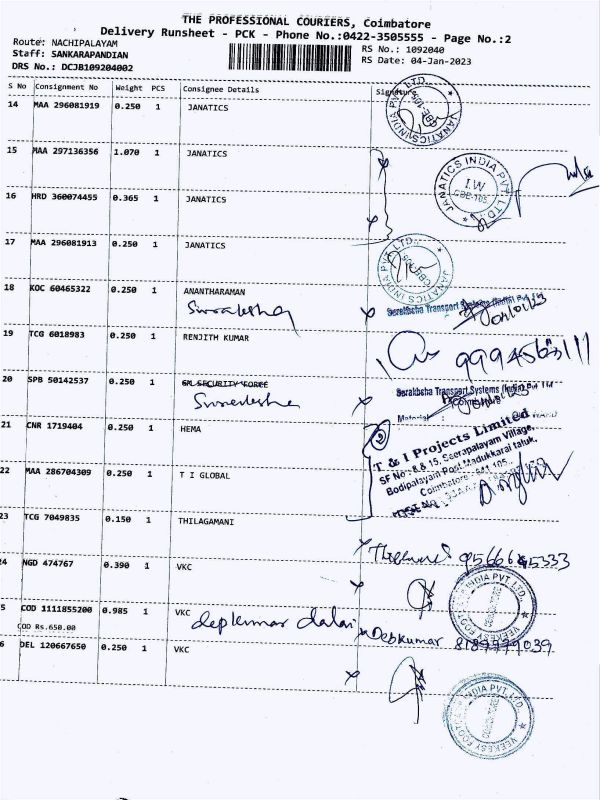 THE PROFESSIONAL COURIERS, Coimbatore
Delivery Runsheet - PCK - Phone No.:0422-3505555 - Page No.:2
Route: NACHIPALAYAM
Staff: SANKARAPANDIAN
DRS No.: DCJB109204002
RS No.: 1092040
RS Date: 04-Jan-2023
S No Consignment No Weight PCS Consignee Details Signature
14 MAA 296081919 0.250 1 JANATICS
JANATICS INDIA PVT. LTD.
15 MAA 297136356 1.070 1 JANATICS
JANATICS INDIA PVT. LTD.
I.W
16 HRD 360074455 0.365 1 JANATICS
17 MAA 296081913 0.250 1 JANATICS
JANATICS INDIA PVT. LTD.
18 KOC 60465322 0.250 1 ANANTHARAMAN
Surakbsha Transport Systems
19 TCG 6018983 0.250 1 RENJITH KUMAR
20 SPB 50142537 0.250 1 GM SECURITY FORCE
Surakbsha Transport Systems
21 CNR 1719404 0.250 1 HEMA
T & I Projects Limited
SF No: 8 & 15, Seerapalayam Village,
Bodipalayam Post, Madukkarai taluk,
Coimbatore - 641 105
22 MAA 286704309 0.250 1 T I GLOBAL
23 TCG 7049835 0.150 1 THILAGAMANI
24 NGD 474767 0.390 1 VKC
INDIA PVT. LTD.
5 COD 1111855200 0.985 1 VKC
COD Rs.650.00
Debkumar 8189999039
6 DEL 120667650 0.250 1 VKC
INDIA PVT. LTD.